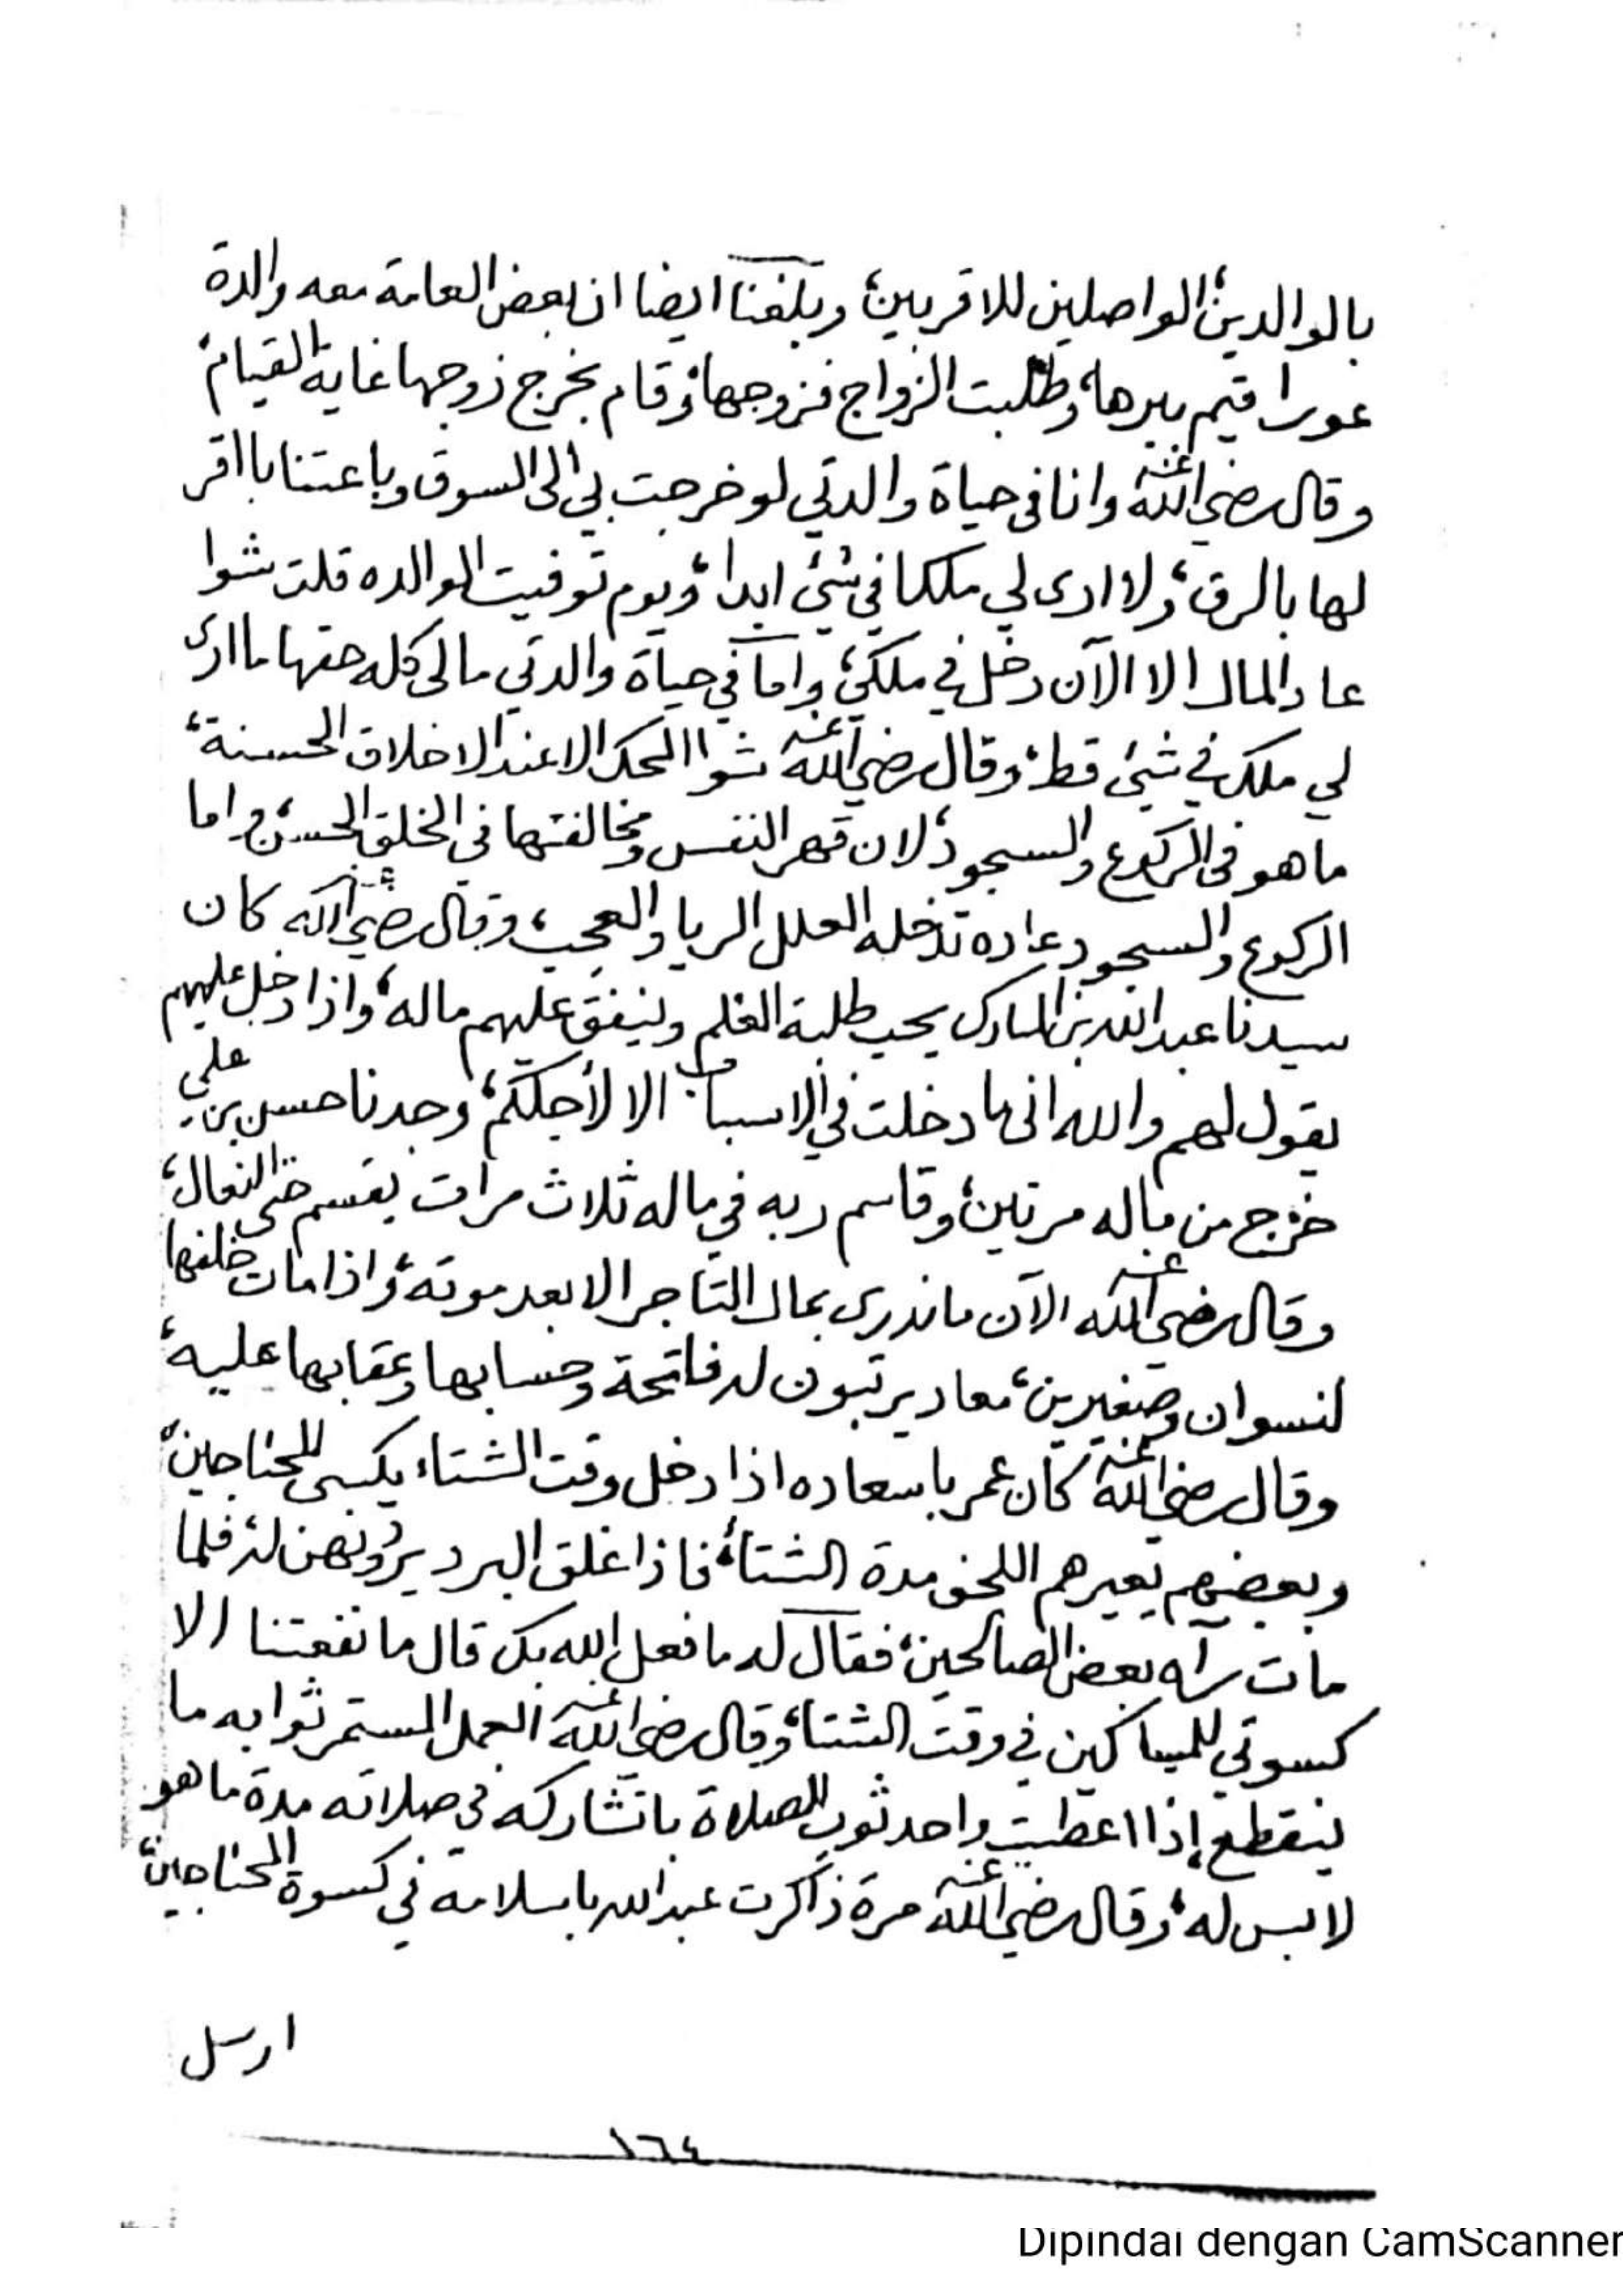 بالوالدين، الواصلين للاقربين، وبلغنا ايضا ان بعض العامة معه والدة
عورا قيم ببرها، وطلبت الزواج فزوجها، وقام بخرج زوجها غاية القيام،
وقال رضي الله عنه وانا في حياة والدتي لو خرجت بي الى السوق وباعتنا باقر
لها بالرق، ولا ارى لي ملكا في شئ ابدا، ويوم توفيت الوالده قلت شوا
عاد المال الا الآن دخل في ملكي، واما في حياة والدتي مالي كله حقها ما ارى
لي ملك في شئ قط، وقال رضي الله عنه شوا المحك الا عند الاخلاق الحسنة،
ما هو في الركوع والسجود، لان قهر النفس ومخالفتها في الخلق الحسن، واما
الركوع والسجود عاده تدخله العلل الريا والعجب، وقال رضي الله عنه كان
سيدنا عبد الله بن المبارك يحب طلبة العلم وينفق عليهم ماله، واذا دخل عليهم
يقول لهم والله اني ما دخلت في الاسباب الا لأجلكم، وجدنا حسن بن علي
خرج من ماله مرتين، وقاسم ربه في ماله ثلاث مرات يقسم حتى النعال،
وقال رضي الله عنه الآن ما ندرى بمال التاجر الا بعد موته، واذا مات خلفها
لنسوان وصغيرين، معاد يرتبون له فاتحة وحسابها وعقابها عليه،
وقال رضي الله عنه كان عمر باسعاده اذا دخل وقت الشتاء يكسي المحتاجين،
وبعضهم يعيرهم اللحف مدة الشتاء، فاذا غلق البرد يردونهن له، فلما
مات رآه بعض الصالحين، فقال له ما فعل الله بك قال ما نفعتنا الا
كسوتي للمساكين في وقت الشتاء، وقال رضي الله عنه العمل المستمر ثوابه ما
ينقطع إذا اعطيت واحد ثوب للصلاة باتشاركه في صلاته مدة ما هو
لابس له، وقال رضي الله عنه مرة ذاكرت عبد الله باسلامه في كسوة المحتاجين،
ارسل
١٦٤
Dipindai dengan CamScanner